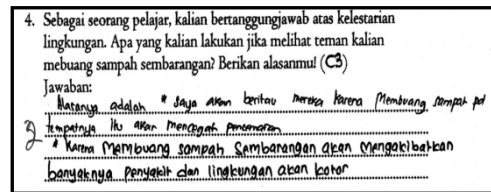 4. Sebagai seorang pelajar, kalian bertanggungjawab atas kelestarian
lingkungan. Apa yang kalian lakukan jika melihat teman kalian
mebuang sampah sembarangan? Berikan alasanmu! (C3)
Jawaban:
Alasanya adalah * saya akan beritau mereka karena Membuang sampah pd
tempatnya itu akan mencegah pencemaran
* Karena Membuang sampah Sembarangan akan mengakibatkan
banyaknya penyakit dan lingkungan akan kotor